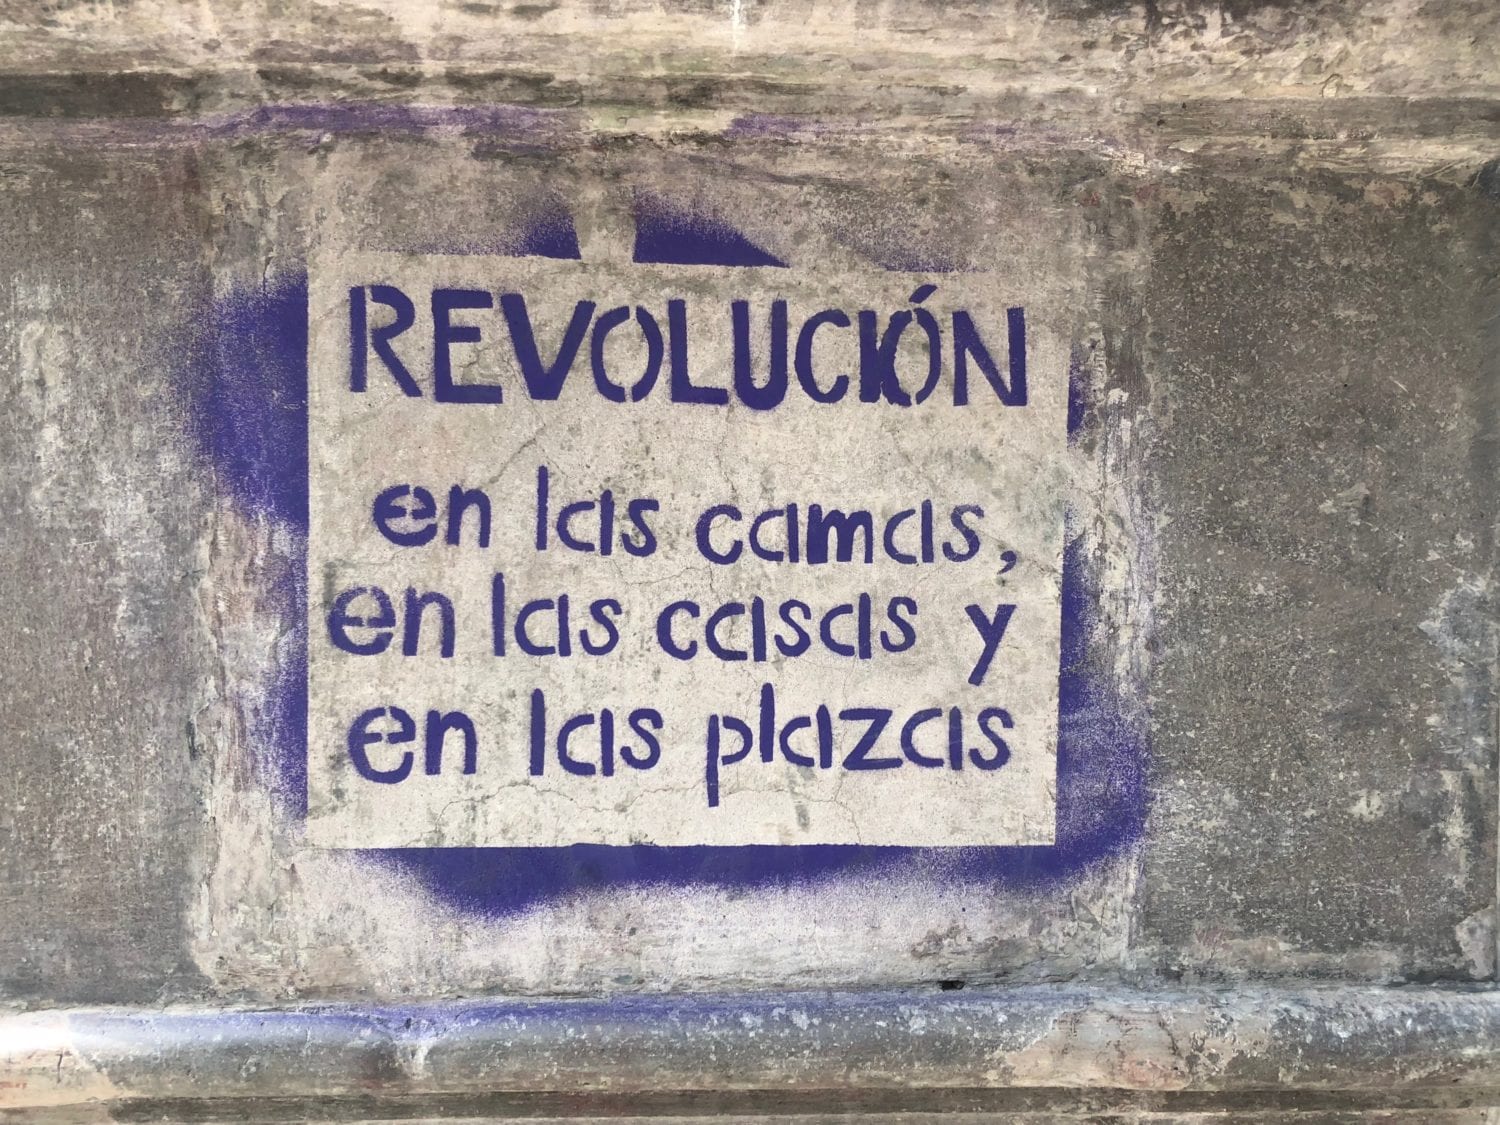 REVOLUCIÓN
en las camas,
en las casas y
en las plazas